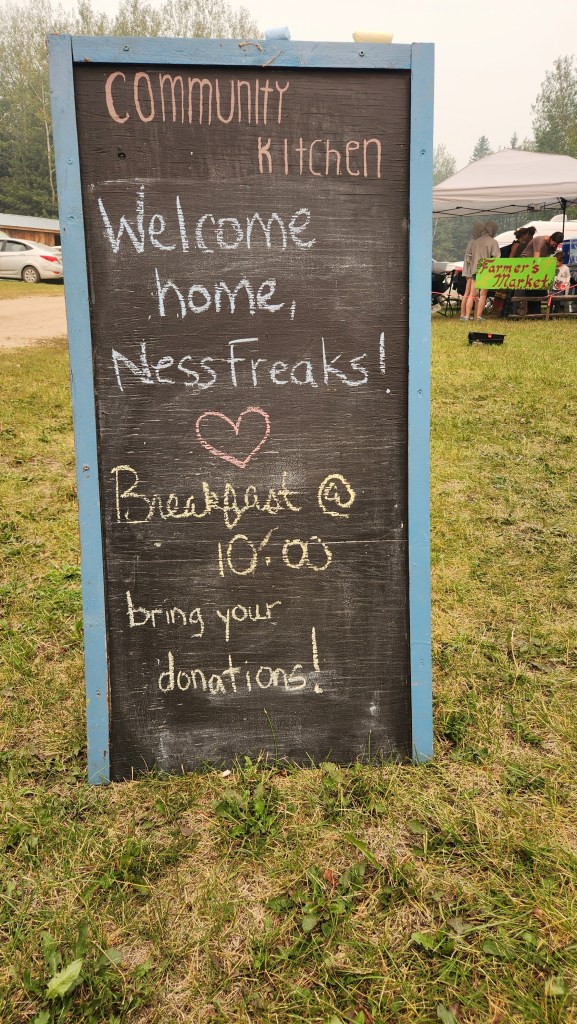 Community
Kitchen
Welcome
home,
Ness Freaks!
Breakfast @
10:00
bring your
donations!
Farmer's
Market